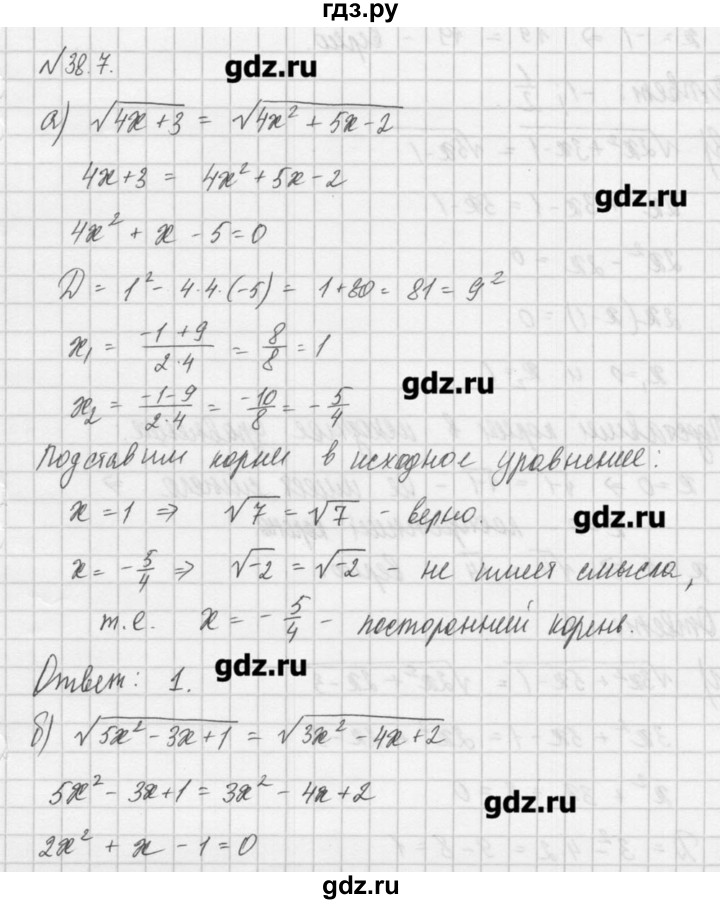 гдз.ру
№38.7.
gdz.ru
а) √(4x+3) = √(4x² + 5x-2)
4x+3 = 4x²+5x-2
gdz.ru
4x² + x - 5=0
D = 1² - 4·4·(-5) = 1+80= 81= 9²
x₁ = (-1+9)/(2·4) = 8/8 = 1
gdz.ru
x₂ = (-1-9)/(2·4) = -10/8 = -5/4
Подставим корни в исходное уравнение:
x = 1 ⇒ √7 = √7 - верно.
gdz.ru
x= -5/4 ⇒ √-2 = √-2 - не имеет смысла,
т.е. x = -5/4 - посторонний корень.
gdz.ru
Ответ: 1.
б) √(5x² - 3x+1) = √(3x² - 4x+2)
5x² - 3x+1 = 3x² - 4x+2
gdz.ru
2x² + x - 1=0
gdz.ru